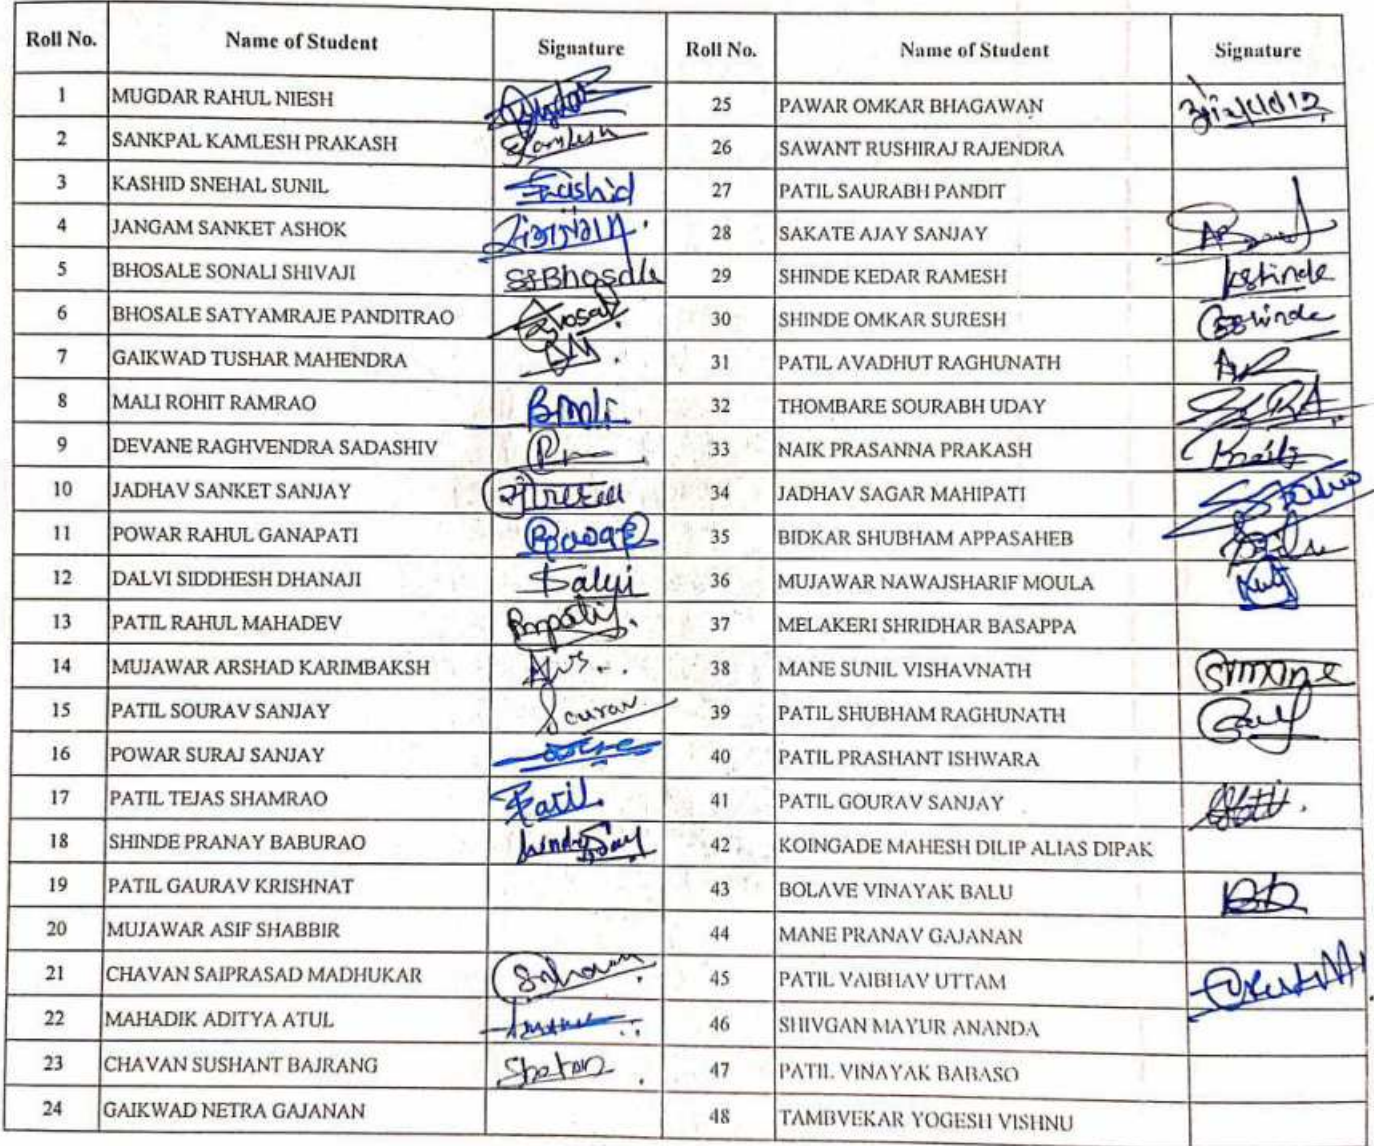 Roll No. Name of Student Signature Roll No. Name of Student Signature
1 MUGDAR RAHUL NIESH 25 PAWAR OMKAR BHAGAWAN
2 SANKPAL KAMLESH PRAKASH Kamlesh 26 SAWANT RUSHIRAJ RAJENDRA
3 KASHID SNEHAL SUNIL Kashid 27 PATIL SAURABH PANDIT
4 JANGAM SANKET ASHOK 28 SAKATE AJAY SANJAY
5 BHOSALE SONALI SHIVAJI SSBhosale 29 SHINDE KEDAR RAMESH kshinde
6 BHOSALE SATYAMRAJE PANDITRAO 30 SHINDE OMKAR SURESH
7 GAIKWAD TUSHAR MAHENDRA 31 PATIL AVADHUT RAGHUNATH
8 MALI ROHIT RAMRAO 32 THOMBARE SOURABH UDAY
9 DEVANE RAGHVENDRA SADASHIV 33 NAIK PRASANNA PRAKASH
10 JADHAV SANKET SANJAY 34 JADHAV SAGAR MAHIPATI
11 POWAR RAHUL GANAPATI 35 BIDKAR SHUBHAM APPASAHEB
12 DALVI SIDDHESH DHANAJI Dalvi 36 MUJAWAR NAWAJSHARIF MOULA
13 PATIL RAHUL MAHADEV Rmpatil. 37 MELAKERI SHRIDHAR BASAPPA
14 MUJAWAR ARSHAD KARIMBAKSH 38 MANE SUNIL VISHAVNATH SVmane
15 PATIL SOURAV SANJAY Sourav 39 PATIL SHUBHAM RAGHUNATH
16 POWAR SURAJ SANJAY 40 PATIL PRASHANT ISHWARA
17 PATIL TEJAS SHAMRAO Patil. 41 PATIL GOURAV SANJAY
18 SHINDE PRANAY BABURAO 42 KOINGADE MAHESH DILIP ALIAS DIPAK
19 PATIL GAURAV KRISHNAT 43 BOLAVE VINAYAK BALU
20 MUJAWAR ASIF SHABBIR 44 MANE PRANAV GAJANAN
21 CHAVAN SAIPRASAD MADHUKAR 45 PATIL VAIBHAV UTTAM
22 MAHADIK ADITYA ATUL 46 SHIVGAN MAYUR ANANDA
23 CHAVAN SUSHANT BAJRANG 47 PATIL VINAYAK BABASO
24 GAIKWAD NETRA GAJANAN 48 TAMBVEKAR YOGESH VISHNU